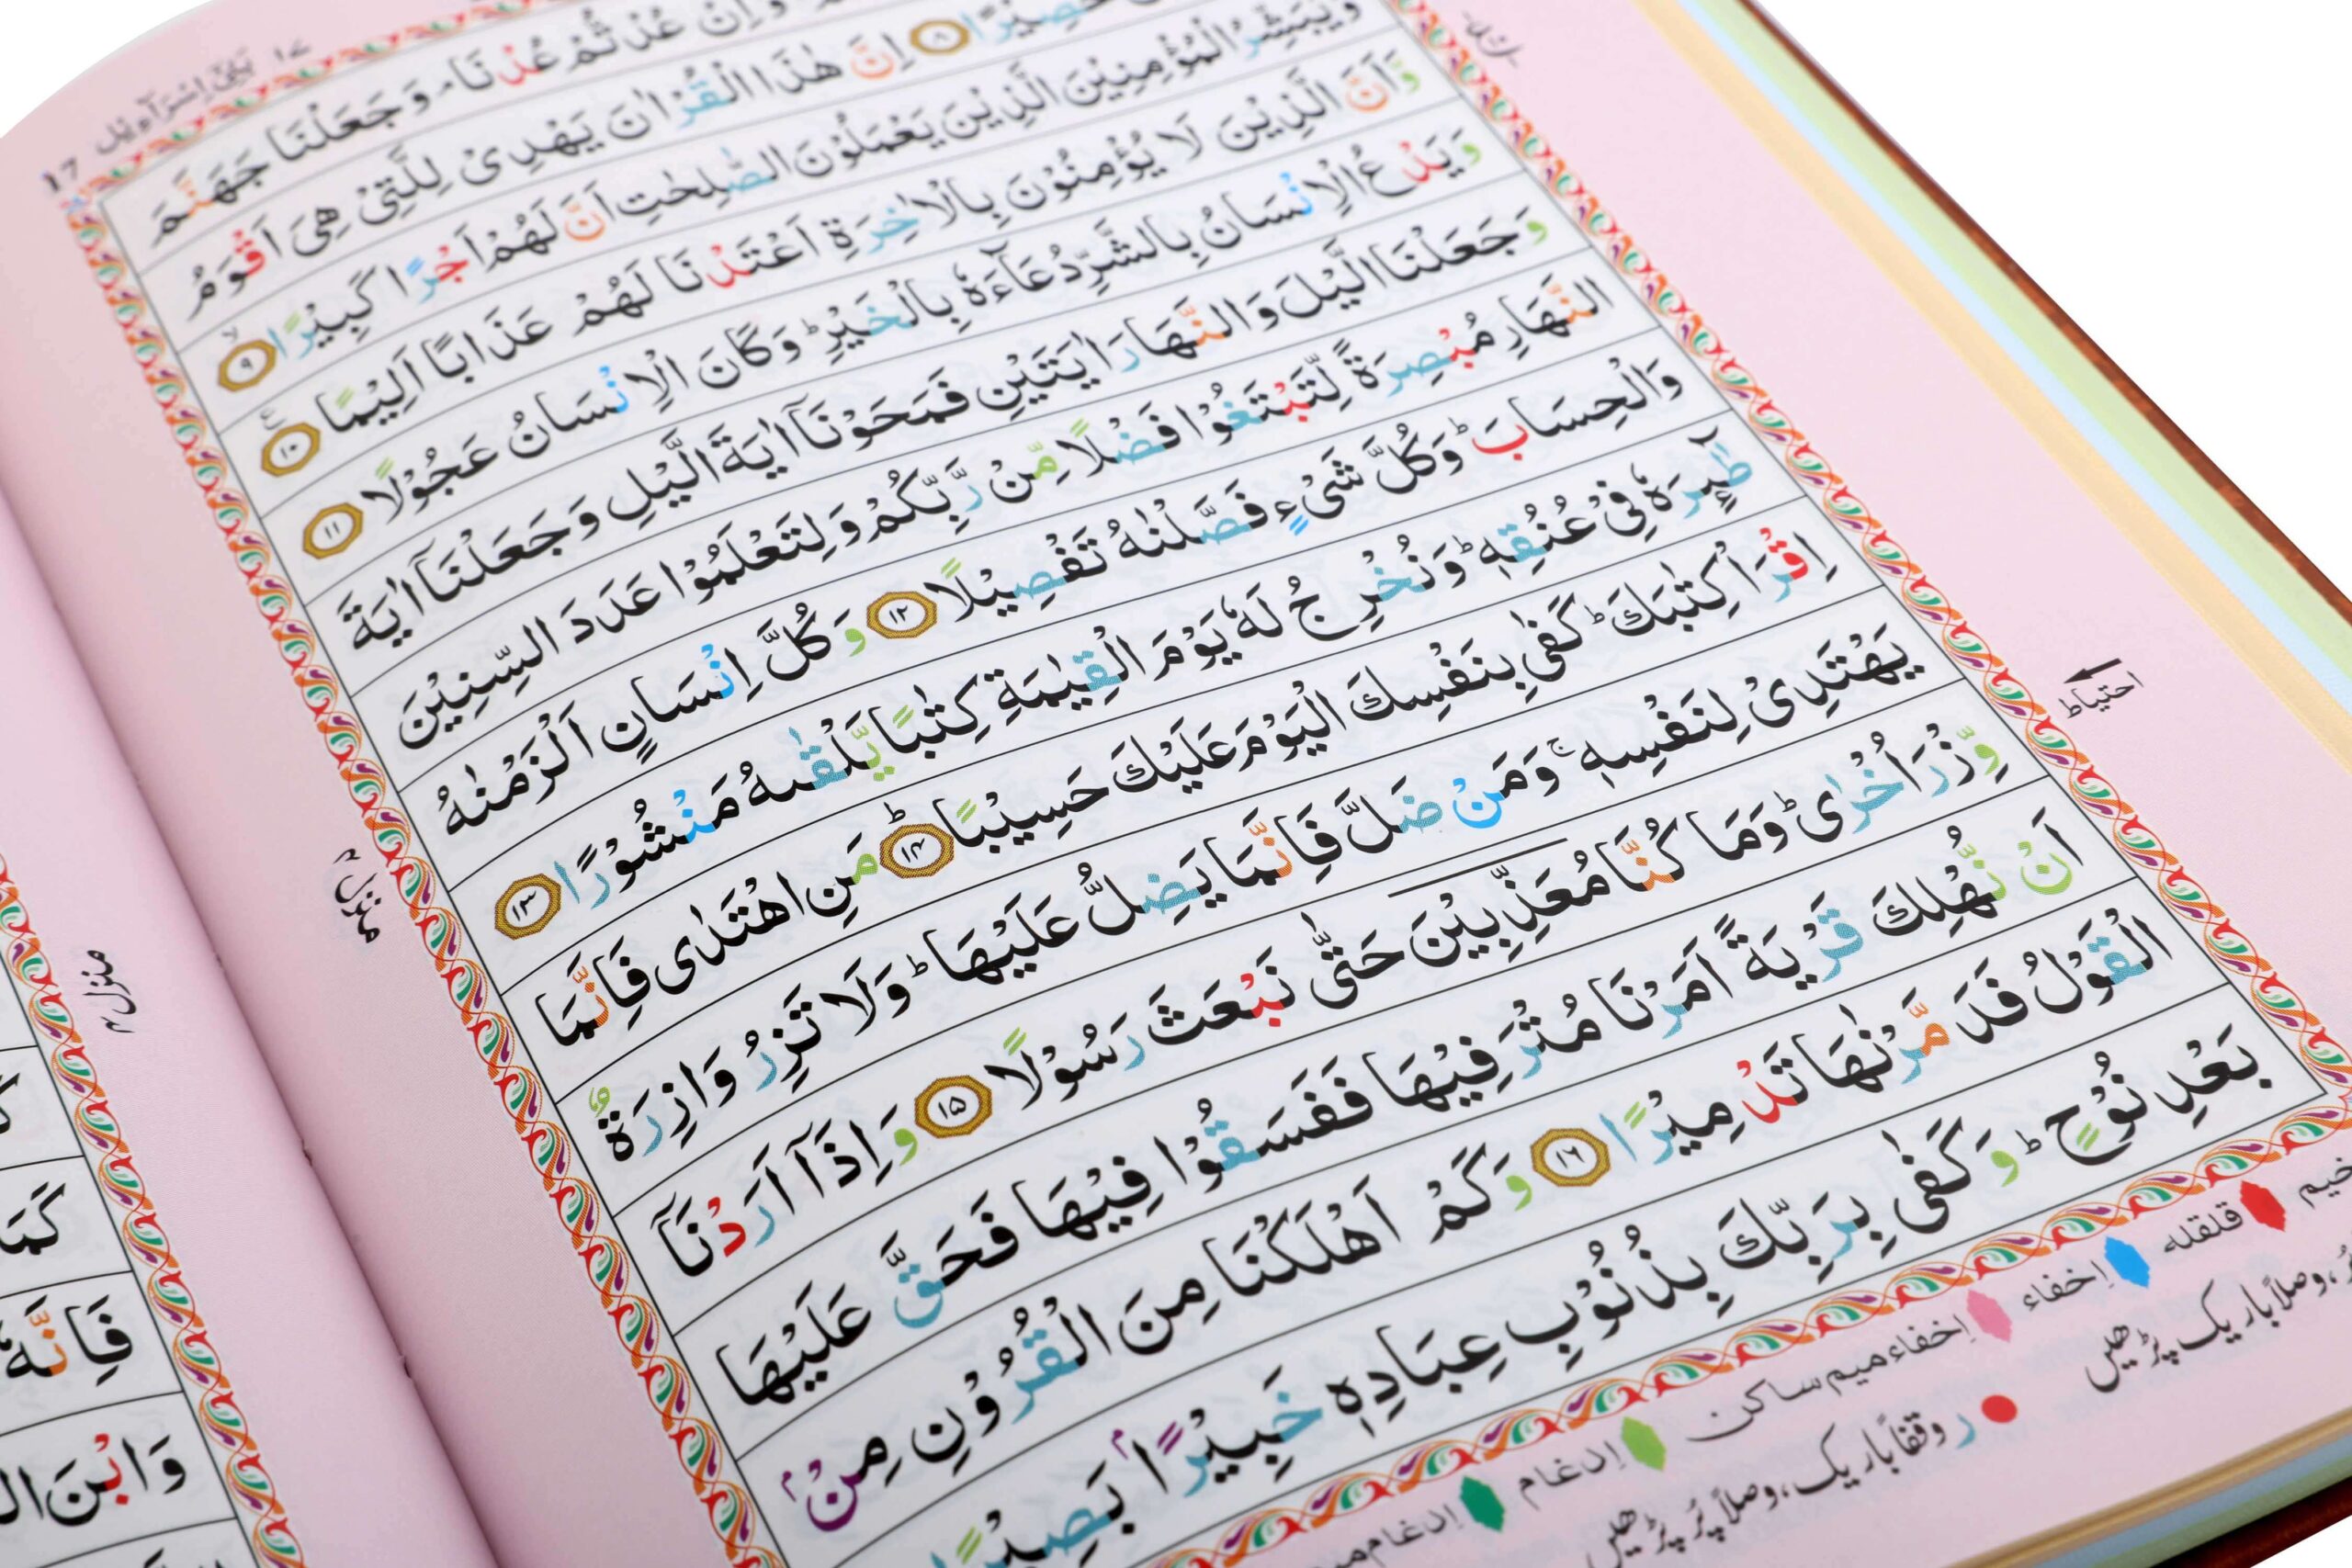 بَنِیْٓ اِسْرَآءِیْل ۱۷
17
وَاِنْ عُدْتُّمْ عُدْنَا ۘ وَجَعَلْنَا جَهَنَّمَ
حَصِیْرًا ۸ اِنَّ هٰذَا الْقُرْاٰنَ یَهْدِیْ لِلَّتِیْ هِیَ اَقْوَمُ
وَیُبَشِّرُ الْمُؤْمِنِیْنَ الَّذِیْنَ یَعْمَلُوْنَ الصّٰلِحٰتِ اَنَّ لَهُمْ اَجْرًا كَبِیْرًا ۙ ۹
وَّاَنَّ الَّذِیْنَ لَا یُؤْمِنُوْنَ بِالْاٰخِرَةِ اَعْتَدْنَا لَهُمْ عَذَابًا اَلِیْمًا ۱۰ ع
وَیَدْعُ الْاِنْسَانُ بِالشَّرِّ دُعَآءَهٗ بِالْخَیْرِ ؕ وَكَانَ الْاِنْسَانُ عَجُوْلًا ۱۱
وَجَعَلْنَا الَّیْلَ وَالنَّهَارَ اٰیَتَیْنِ فَمَحَوْنَآ اٰیَةَ الَّیْلِ وَجَعَلْنَآ اٰیَةَ
النَّهَارِ مُبْصِرَةً لِّتَبْتَغُوْا فَضْلًا مِّنْ رَّبِّكُمْ وَلِتَعْلَمُوْا عَدَدَ السِّنِیْنَ
وَالْحِسَابَ ؕ وَكُلَّ شَیْءٍ فَصَّلْنٰهُ تَفْصِیْلًا ۱۲ وَكُلَّ اِنْسَانٍ اَلْزَمْنٰهُ
طٰٓئِرَهٗ فِیْ عُنُقِهٖ ؕ وَنُخْرِجُ لَهٗ یَوْمَ الْقِیٰمَةِ كِتٰبًا یَّلْقٰىهُ مَنْشُوْرًا ۱۳
اِقْرَاْ كِتٰبَكَ ؕ كَفٰی بِنَفْسِكَ الْیَوْمَ عَلَیْكَ حَسِیْبًا ؕ ۱۴ مَنِ اهْتَدٰی فَاِنَّمَا
یَهْتَدِیْ لِنَفْسِهٖ ۚ وَمَنْ ضَلَّ فَاِنَّمَا یَضِلُّ عَلَیْهَا ؕ وَلَا تَزِرُ وَازِرَةٌ
وِّزْرَ اُخْرٰی ؕ وَمَا كُنَّا مُعَذِّبِیْنَ حَتّٰی نَبْعَثَ رَسُوْلًا ۱۵ وَاِذَآ اَرَدْنَآ
اَنْ نُّهْلِكَ قَرْیَةً اَمَرْنَا مُتْرَفِیْهَا فَفَسَقُوْا فِیْهَا فَحَقَّ عَلَیْهَا
الْقَوْلُ فَدَمَّرْنٰهَا تَدْمِیْرًا ۱۶ وَكَمْ اَهْلَكْنَا مِنَ الْقُرُوْنِ مِنْۢ
بَعْدِ نُوْحٍ ؕ وَكَفٰی بِرَبِّكَ بِذُنُوْبِ عِبَادِهٖ خَبِیْرًۢا بَصِیْرًا
احتیاط
منزل ۴
قلقله اِخفاء اِخفاء میم ساکن اِدغام اِدغام
ر وقفًا باریک، وصلًا پُر پڑھیں
وصلًا باریک پڑھیں
منزل ۴
كَمَا
فَاِنَّهٗ
وَابْنَ